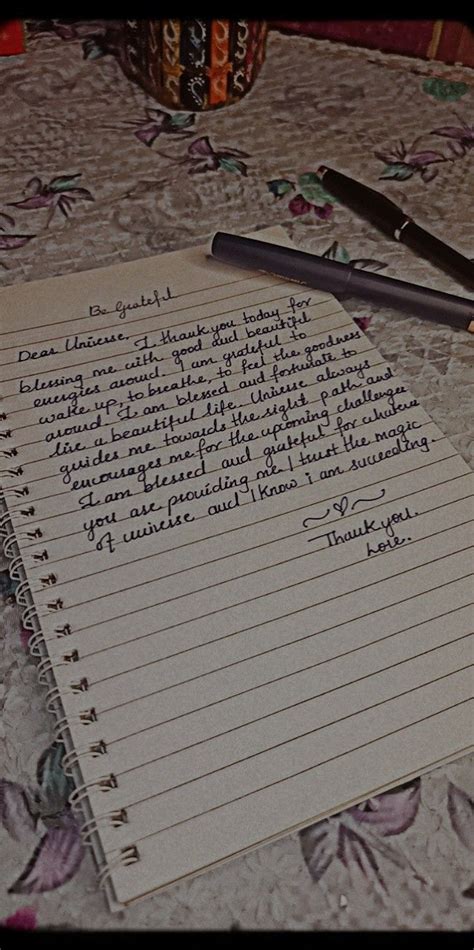 Be Grateful
Dear Universe,
I thank you today for
blessing me with good and beautiful
energies around. I am grateful to
wake up, to breathe, to feel the goodness
around. I am blessed and fortunate to
live a beautiful life. Universe always
guides me towards the right path and
encourages me for the upcoming challenges
I am blessed and grateful for whatever
you are providing me I trust the magic
of universe and I know i am succeeding.
Thank you.
Love.